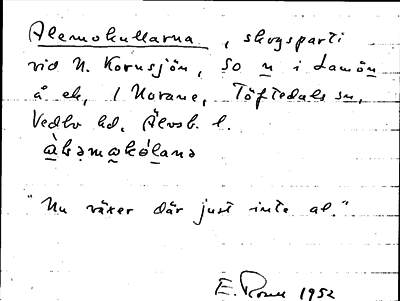 Alemokullarna, skogsparti
vid N. Kornsjön, SO n i Lamön
å ek, 1 Norane, Töftedals sn,
Vedbo hd, Älvsb. l.
"Nu växer där just inte al."
E. 1952